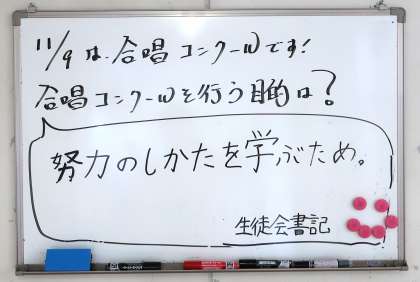 11/9は、合唱コンクールです!
合唱コンクールを行う目的は?
努力のしかたを学ぶため。
生徒会書記